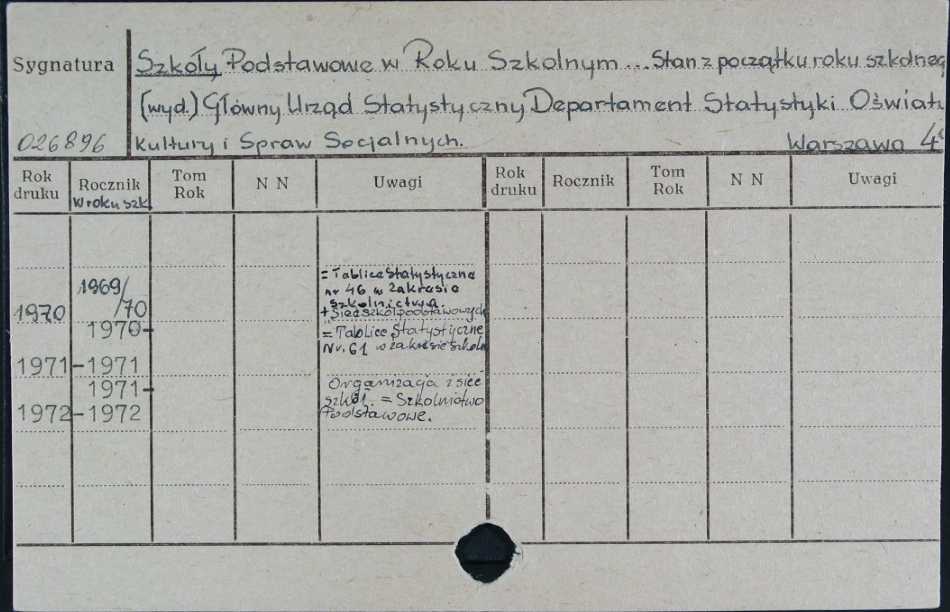 Sygnatura
Szkoły Podstawowe w Roku Szkolnym ... Stan z początku roku szkolneg
(wyd.) Główny Urząd Statystyczny Departament Statystyki Oświaty
026896 Kultury i Spraw Socjalnych. Warszawa 4°
Rok druku Rocznik w roku szk. Tom Rok N N Uwagi Rok druku Rocznik Tom Rok N N Uwagi
= Tablice Statystyczne
nr 46 w zakresie
szkolnictwa.
1970 1969/70 + Sieć szkół podstawowych
1970- = Tablice Statystyczne
Nr. 61 w zakresie szkoln
1971 -1971
1971- Organizacja i sieć
szkół. = Szkolnictwo
1972 -1972 Podstawowe.